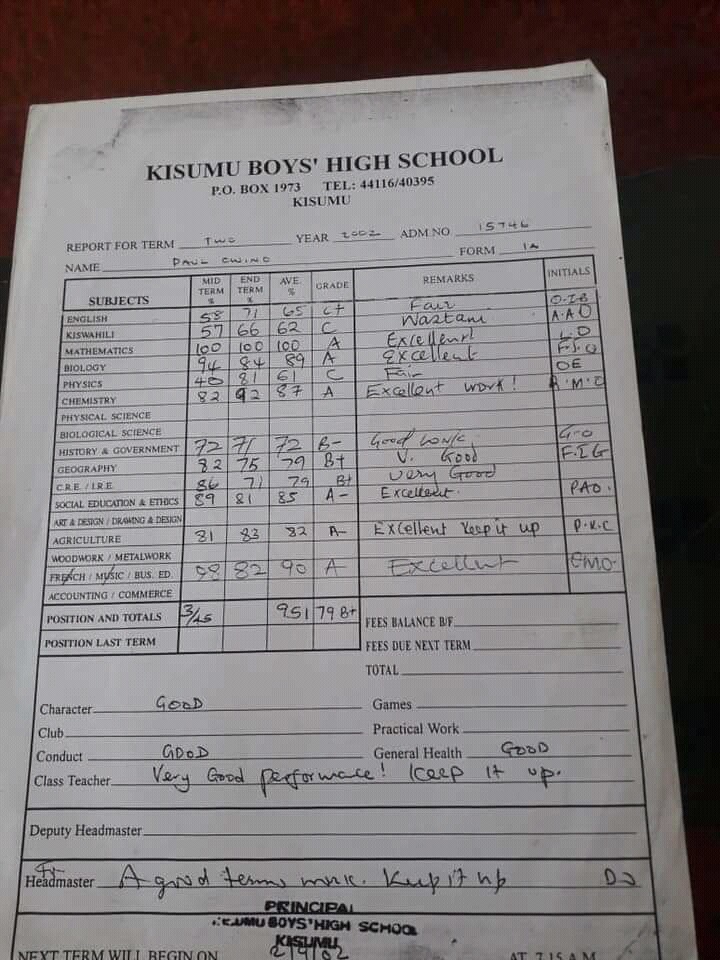 KISUMU BOYS' HIGH SCHOOL
P.O. BOX 1973 TEL: 44116/40395
KISUMU
REPORT FOR TERM TWO YEAR 2002 ADM.NO 15746
NAME PAUL OWINO FORM 1A
SUBJECTS MID TERM % END TERM % AVE. % GRADE REMARKS INITIALS
ENGLISH 58 71 65 C+ Fair O.I.B
KISWAHILI 57 66 62 C Wastani A.A.O
MATHEMATICS 100 100 100 A Excellent! L.O
BIOLOGY 94 84 89 A Excellent F.J.O
PHYSICS 40 81 61 C Fair OE
CHEMISTRY 82 92 87 A Excellent work! R.M.O
PHYSICAL SCIENCE
BIOLOGICAL SCIENCE
HISTORY & GOVERNMENT 72 71 72 B- Good work G.O
GEOGRAPHY 82 75 79 B+ V. Good F.I.G
C.R.E. / I.R.E. 86 71 79 B+ very Good
SOCIAL EDUCATION & ETHICS 89 81 85 A- Excellent. PAO.
ART & DESIGN / DRAWING & DESIGN
AGRICULTURE 81 83 82 A- Excellent keep it up P.K.C
WOODWORK / METALWORK
FRENCH / MUSIC / BUS. ED. 98 82 90 A Excellent OMO.
ACCOUNTING / COMMERCE
POSITION AND TOTALS 3/45 951 79 B+ FEES BALANCE B/F
POSITION LAST TERM FEES DUE NEXT TERM
TOTAL
Character GOOD Games
Club Practical Work
Conduct GOOD General Health GOOD
Class Teacher Very Good performance! Keep it up.
Deputy Headmaster
Fr
Headmaster A good terms work. Keep it up DJ
PRINCIPAL
KISUMU BOYS' HIGH SCHOOL
KISUMU
NEXT TERM WILL BEGIN ON 2/9/02 AT 7.15 A.M.